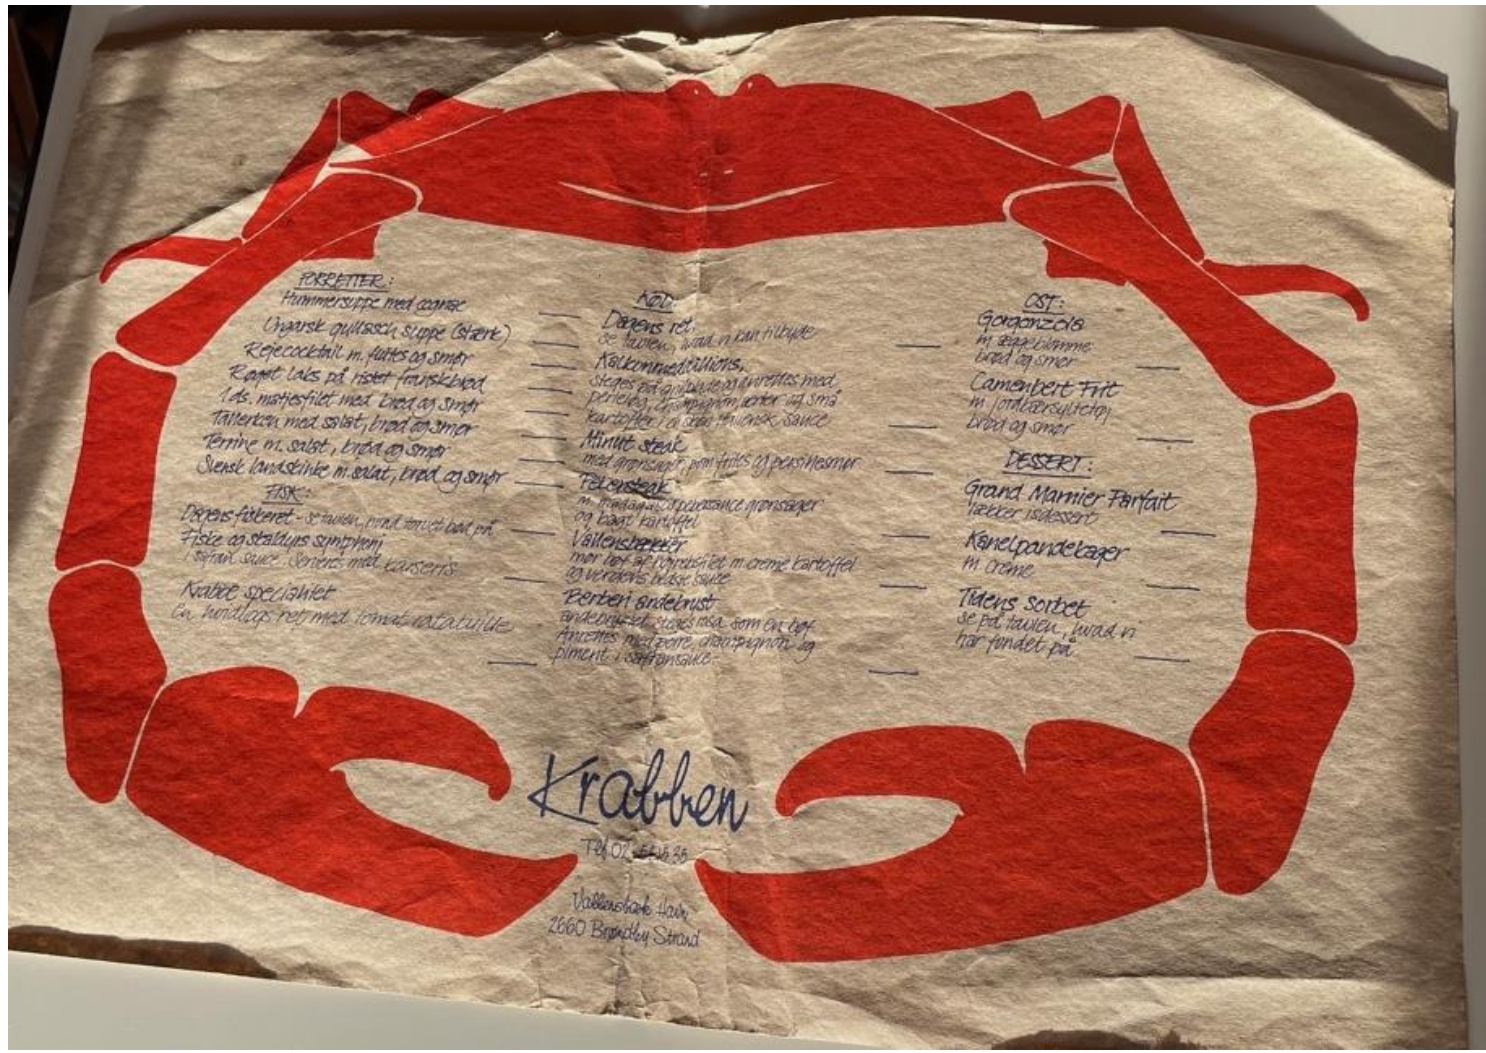 FORRETTER:
Hummersuppe med cognac
Ungarsk gullasch suppe (stærk)
Rejecocktail m. flutes og smør
Røget laks på ristet franskbrød
1 ds. matjesfilet med brød og smør
Tallerken med salat, brød og smør
Terrine m. salat, brød og smør
Svensk landskinke m. salat, brød og smør
FISK:
Dagens fiskeret - se tavlen, hvad torvet bød på
Fiske og skaldyrs symphoni
i safran sauce. Serveres med
Krabbe specialitet
en hvidløgs ret med tomat ratatuille
KØD:
Dagens ret,
se tavlen, hvad vi kan tilbyde
Kalkonmedallions,
steges på grillpande og anrettes med
perleløg, champignon, ærter og små
kartofler i en skøn italiensk sauce
Minut steak
med grønsager, pom frites og persillesmør
Pebersteak
m. madagascar pebersauce grønsager
og bagt kartoffel
Vallensbækker
mør bøf af m. creme kartoffel
og verdens bedste sauce
Berberi andebryst
andebrystet steges rosa som en bøf
Anrettes med porre, champignon og
piment i safransauce.
OST:
Gorgonzola
m æggeblomme
brød og smør
Camenbert Frit
m jordbærsyltetøj
brød og smør
DESSERT:
Grand Marnier Parfait
lækker isdessert
Kanelpandekager
m. creme
Tidens sorbet
se på tavlen, hvad vi
har fundet på
Krabben
Tlf. 02
Vallensbæk Havn
2660 Brøndby Strand